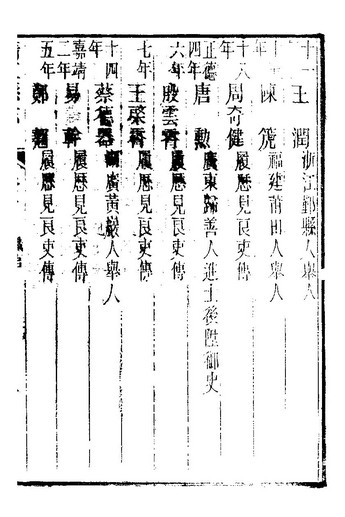 十一年 王潤 浙江鄞縣人舉人
年 陳 福建莆田人舉人
十八年 周奇健 履歷見良吏傳
正德四年 唐勲 廣東歸善人進士後陞御史
六年 殷雲霄 履歷見良吏傳
七年 王 履歷見良吏傳
十四年 蔡德器 廣黃巖人舉人
嘉靖二年 易幹 履歷見良吏傳
五年 鄭 履歷見良吏傳